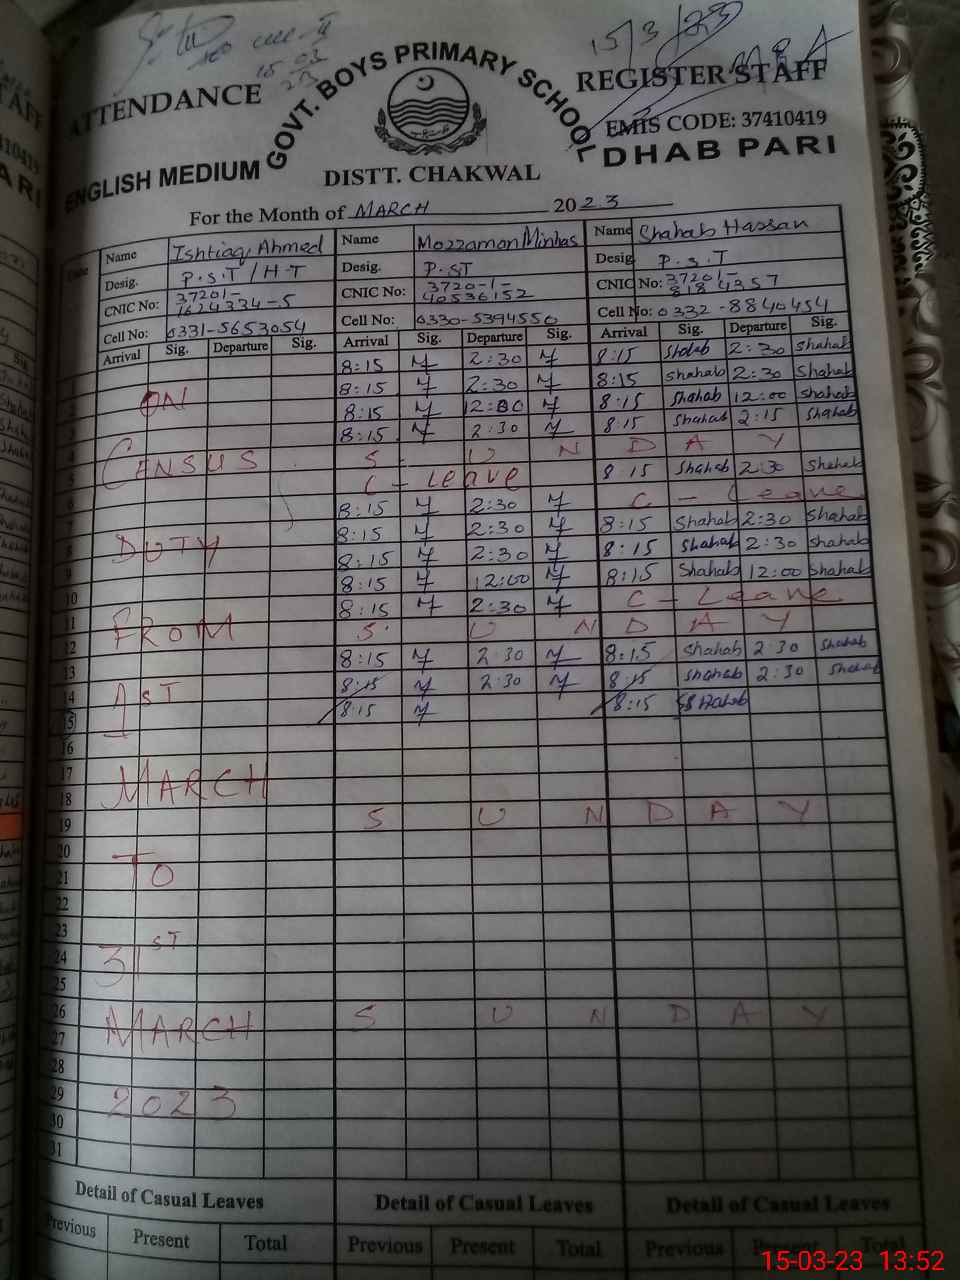 15/3/23
15.03
ATTENDANCE
GOVT. BOYS PRIMARY SCHOOL
REGISTER STAFF
EMIS CODE: 37410419
ENGLISH MEDIUM
DHAB PARI
DISTT. CHAKWAL
For the Month of MARCH 2023
Name Ishtiaq Ahmed Name Mozzaman Minhas Name Shahab Hassan
Desig. P.S.T / H.T Desig. P.ST Desig P.S.T
CNIC No: 37201-7624334-5 CNIC No: 3720-1-40536152 CNIC No: 37201-8184357
Cell No: 0331-5653054 Cell No: 0330-5394550 Cell No: 0332-8840454
Arrival Sig. Departure Sig. Arrival Sig. Departure Sig. Arrival Sig. Departure Sig.
8:15 2:30 8:15 Shahab 2:30 Shahab
ON 8:15 2:30 8:15 Shahab 2:30 Shahab
8:15 12:00 8:15 Shahab 12:00 Shahab
8:15 2:30 8:15 Shahab 2:15 Shahab
4 CENSUS S U N D A Y
5 C - Leave 8:15 Shahab 2:30 Shahab
6 8:15 2:30 C - Leave
7 8:15 2:30 8:15 Shahab 2:30 Shahab
8 DUTY 8:15 2:30 8:15 Shahab 2:30 Shahab
9 8:15 12:00 8:15 Shahab 12:00 Shahab
10 8:15 2:30 C - Leave
11 FROM S U N D A Y
12 8:15 2:30 8:15 Shahab 2:30 Shahab
13 8:15 2:30 8:15 Shahab 2:30 Shahab
14 1ST 8:15 8:15 Shahab
15
16
17 MARCH
18
19 S U N D A Y
20
21 TO
22
23
24 31ST
25
26 MARCH S U N D A Y
27
28
29 2023
30
31
Detail of Casual Leaves Detail of Casual Leaves Detail of Casual Leaves
Previous Present Total Previous Present Total Previous Present Total
15-03-23 13:52